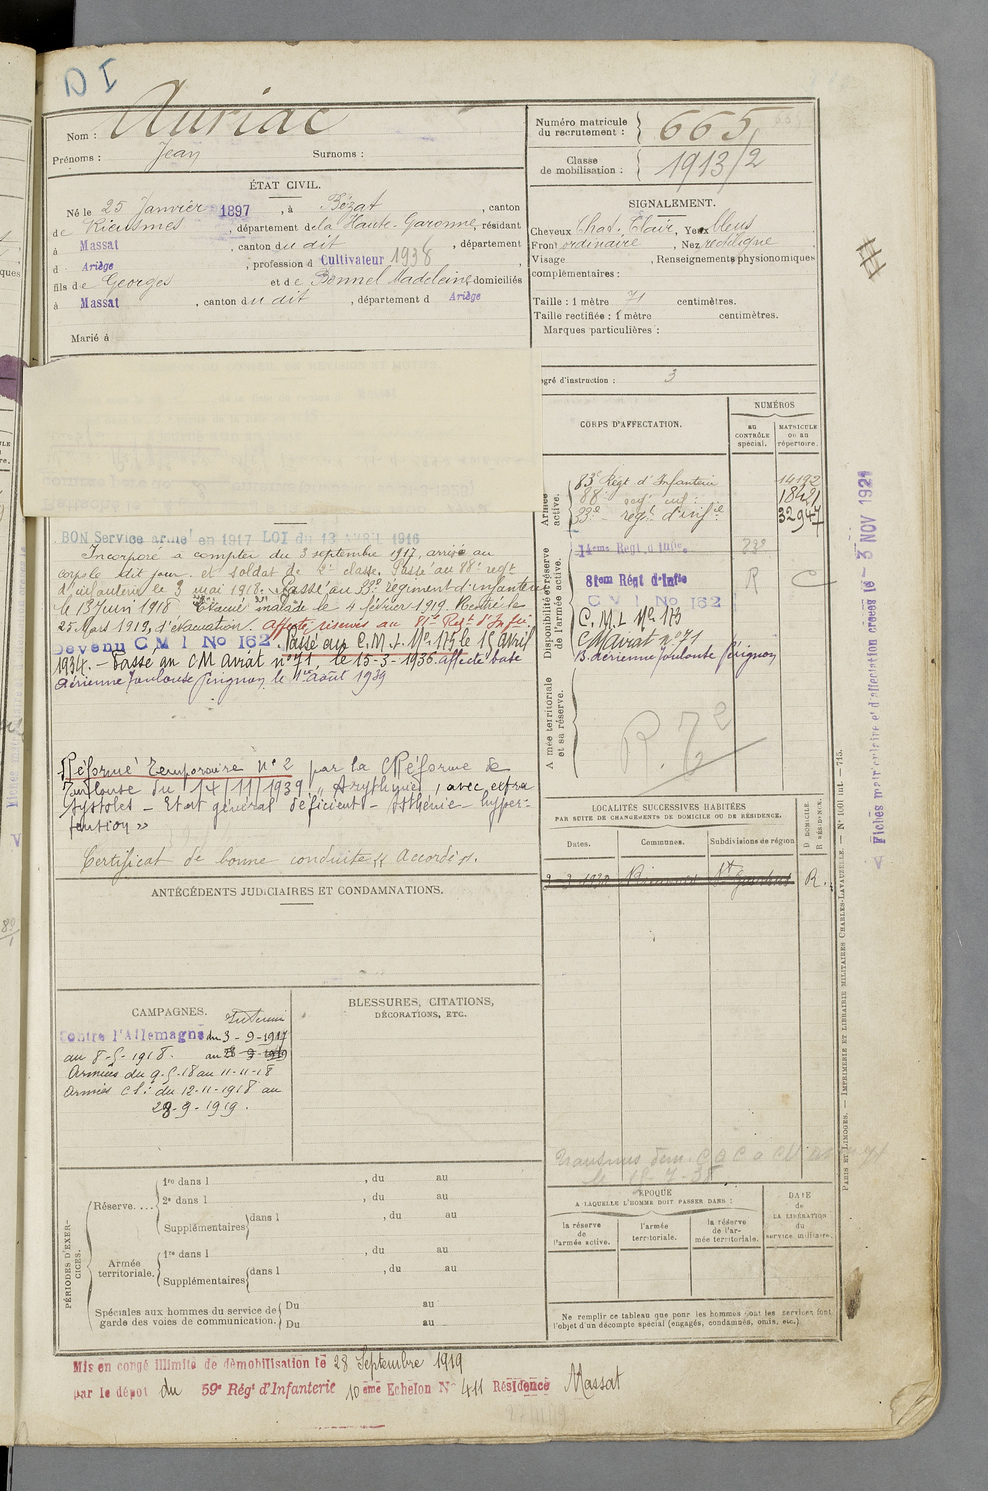 D I
Nom : Auriac
Prénoms : Jean Surnoms :
Numéro matricule du recrutement : 665
Classe de mobilisation : 1913/2
ÉTAT CIVIL.
Né le 25 Janvier 1897, à Bézat, canton
de Rieumes, département de la Haute-Garonne, résidant
à Massat, canton du dit, département
d Ariège, profession d Cultivateur 1938
fils de Georges et de Bonnel Madeleine domiciliés
à Massat, canton du dit, département d Ariège
Marié à
SIGNALEMENT.
Cheveux Chat. Clair, Yeux bleus
Front ordinaire, Nez rectiligne
Visage , Renseignements physionomiques
complémentaires :
Taille : 1 mètre 71 centimètres.
Taille rectifiée : 1 mètre centimètres.
Marques particulières :
gré d'instruction : 3
CORPS D'AFFECTATION.
NUMÉROS
AU CONTRÔLE spécial.
MATRICULE OU AU répertoire.
Armée active.
83e Régt d'Infanterie 14192
88e régt inf.
33e régt d'infie 32947
Disponibilité et réserve de l'armée active.
14eme Régt d'Infie
81em Régt d'Infie R
C M I No 162
C.M.I. No 173
CM Aviat no 71
B. Aérienne Toulouse Pérignon
Armée territoriale et sa réserve.
BON Service armé en 1917 LOI du 13 AVRIL 1916
Incorporé à compter du 3 septembre 1917, arrivé au
corps le dit jour et soldat de 2e classe. Passé au 88e regt
d'infanterie le 3 mai 1918. Passé au 33e régiment d'infanterie
le 13 Juin 1918 Evacué malade le 4 février 1919. Rentré le
25 Mars 1919, d'évacuation. Affecté réserves au 81e Regt d'Infie
Devenu C M I No 162. Passé au C.M.I. No 175 le 15 avril
1934. - Passé au CM Aviat n°71, le 15-3-1936. affecté base
Aérienne Toulouse Pérignon le 1er Août 1939
Réformé Temporaire n° 2 par la C Réforme de
Toulouse du 14/11/1939 "Arythmie, avec extra
systoles - Etat général déficient - Asthénie - hyper-
tention »
Certificat de bonne conduite "Accordé".
ANTÉCÉDENTS JUDICIAIRES ET CONDAMNATIONS.
LOCALITÉS SUCCESSIVES HABITÉES
PAR SUITE DE CHANGEMENTS DE DOMICILE OU DE RÉSIDENCE.
Dates. Communes. Subdivisions de région
D. DOMICILE. R. RÉSIDENCE.
2-3-1930 Rieumes St Gaudens R.
CAMPAGNES.
Intérieur
Contre l'Allemagne du 3-9-1917
au 8-5-1918.
Armées du 9-5-18 au 11-11-18
Armées du 12-11-1918 au
28-9-1919.
BLESSURES, CITATIONS,
DÉCORATIONS, ETC.
PÉRIODES D'EXERCICES.
Réserve....
1re dans l , du au
2e dans l , du au
Supplémentaires dans l , du au
Armée territoriale.
1re dans l , du au
Supplémentaires dans l , du au
Spéciales aux hommes du service de garde des voies de communication.
Du au
Du au
ÉPOQUE
A LAQUELLE L'HOMME DOIT PASSER DANS :
la réserve de l'armée active.
l'armée territoriale.
la réserve de l'armée territoriale.
DATE de LA LIBÉRATION du service militaire.
Ne remplir ce tableau que pour les hommes dont les services font
l'objet d'un décompte spécial (engagés, condamnés, omis, etc.)
Mis en congé illimité de démobilisation le 28 Septembre 1919
par le dépot du 59e Régt d'Infanterie 10eme Echelon No 411 Résidence Massat
PARIS ET LIMOGES. — IMPRIMERIE ET LIBRAIRIE MILITAIRES CHARLES-LAVAUZELLE. — No 1001 int. — 715.
Fiches matriculaire et d'affectation créées le - 3 NOV 1921